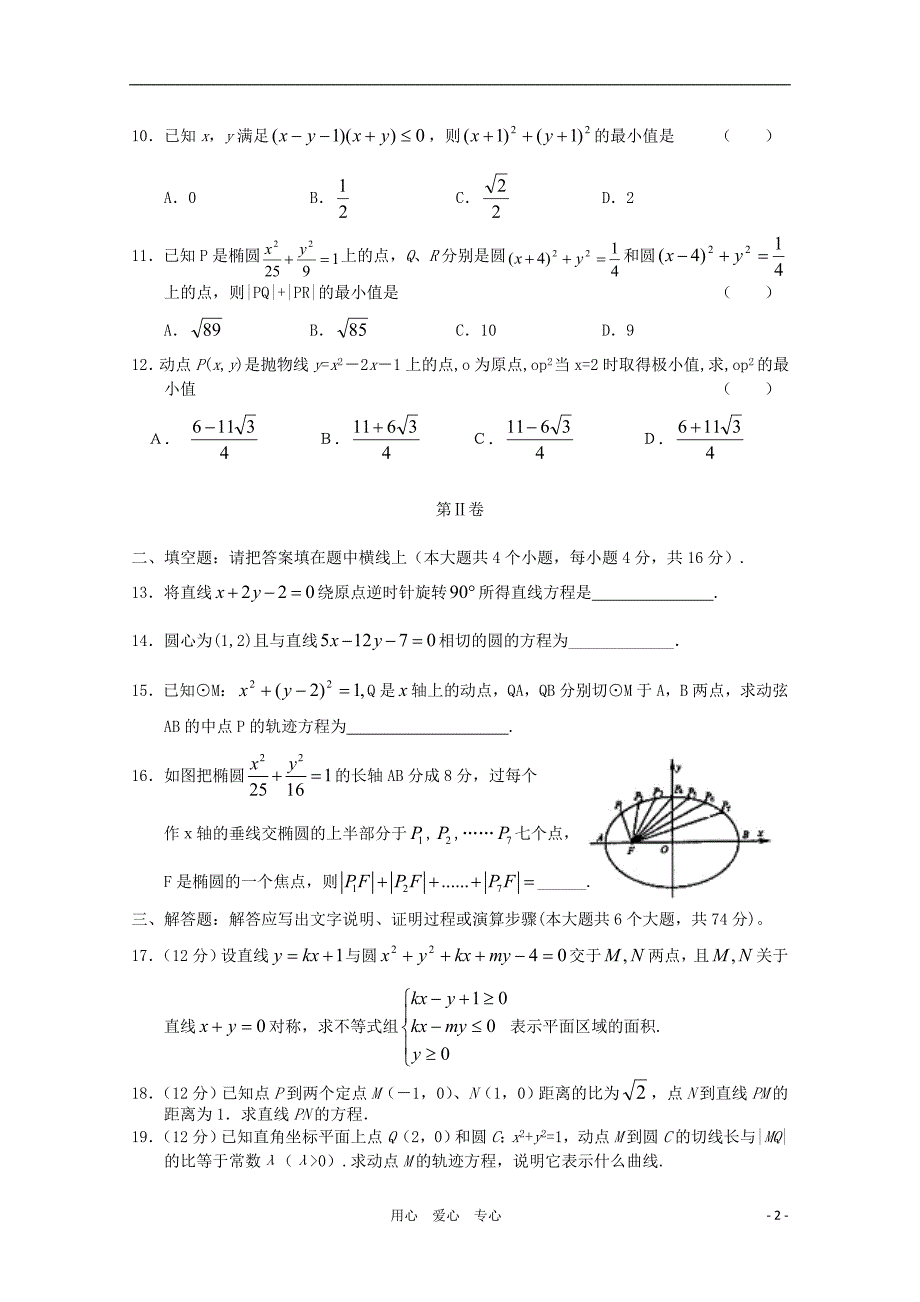 10．已知 x，y 满足(x－y－1)(x＋y)≤0，则(x＋1)²＋(y＋1)²的最小值是 （ ）
A．0 B．1/2 C．√2/2 D．2
11．已知 P 是椭圆x²/25＋y²/9＝1上的点，Q、R 分别是圆(x＋4)²＋y²＝1/4和圆(x－4)²＋y²＝1/4
上的点，则|PQ|+|PR|的最小值是 （ ）
A．√89 B．√85 C．10 D．9
12．动点 P(x,y)是抛物线 y=x²－2x－1 上的点,o 为原点,op²当 x=2 时取得极小值,求,op²的最
小值 （ ）
A． (6－11√3)/4 B．(11＋6√3)/4 C．(11－6√3)/4 D．(6＋11√3)/4
第Ⅱ卷
二、填空题：请把答案填在题中横线上（本大题共 4 个小题，每小题 4 分，共 16 分）.
13．将直线x＋2y－2＝0绕原点逆时针旋转90°所得直线方程是______________．
14．圆心为(1,2)且与直线5x－12y－7＝0相切的圆的方程为_____________．
15．已知⊙M：x²＋(y－2)²＝1,Q 是x轴上的动点，QA，QB 分别切⊙M 于 A，B 两点，求动弦
AB 的中点 P 的轨迹方程为____________________．
16．如图把椭圆x²/25＋y²/16＝1的长轴 AB 分成 8 分，过每个
作 x 轴的垂线交椭圆的上半部分于P₁,P₂,……P₇七个点，
F 是椭圆的一个焦点，则|P₁F|＋|P₂F|＋......＋|P₇F|＝______．
y
P₁ P₂ P₃ P₄ P₅ P₆ P₇
A F O B x
三、解答题：解答应写出文字说明、证明过程或演算步骤(本大题共 6 个大题，共 74 分)。
17．（12 分）设直线y＝kx＋1与圆x²＋y²＋kx＋my－4＝0交于M,N两点，且M,N关于
直线x＋y＝0对称，求不等式组{kx－y＋1≥0 kx－my≤0 y≥0 表示平面区域的面积.
18．（12 分）已知点 P 到两个定点 M（－1，0）、N（1，0）距离的比为√2，点 N 到直线 PM 的
距离为 1．求直线 PN 的方程．
19．（12 分）已知直角坐标平面上点 Q（2，0）和圆 C：x²+y²=1，动点 M 到圆 C 的切线长与|MQ|
的比等于常数λ（λ>0）.求动点 M 的轨迹方程，说明它表示什么曲线.
用心 爱心 专心
- 2 -